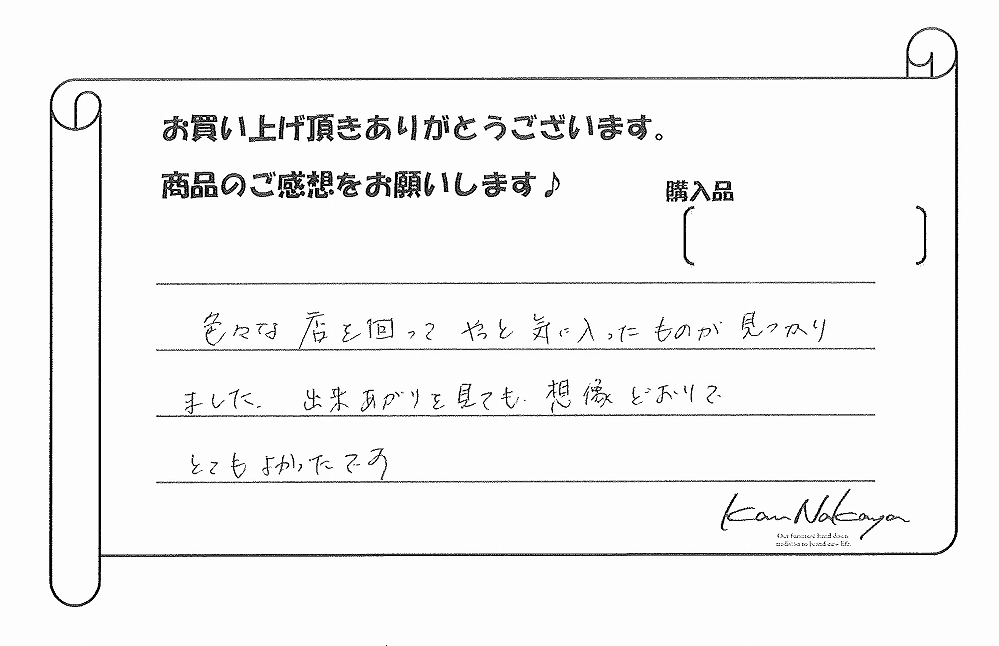 お買い上げ頂きありがとうございます。
商品のご感想をお願いします♪
購入品
色々な店を回ってやっと気に入ったものが見つかり
ました。出来あがりを見ても想像どおりで
とてもよかったです
Kan Nakaya
Our furniture hand down